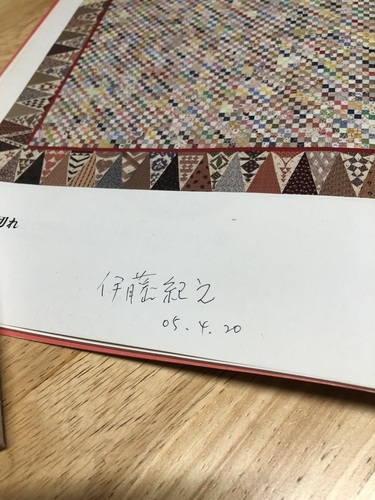 切れ
伊藤紀之
05.4.20